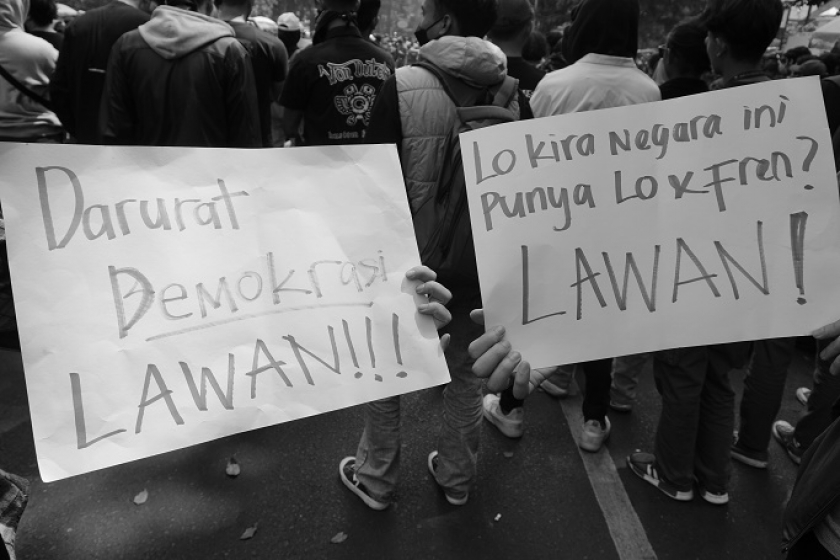 Darurat
Demokrasi
LAWAN!!!
Lo kira Negara ini
Punya Lo x Fren?
LAWAN!